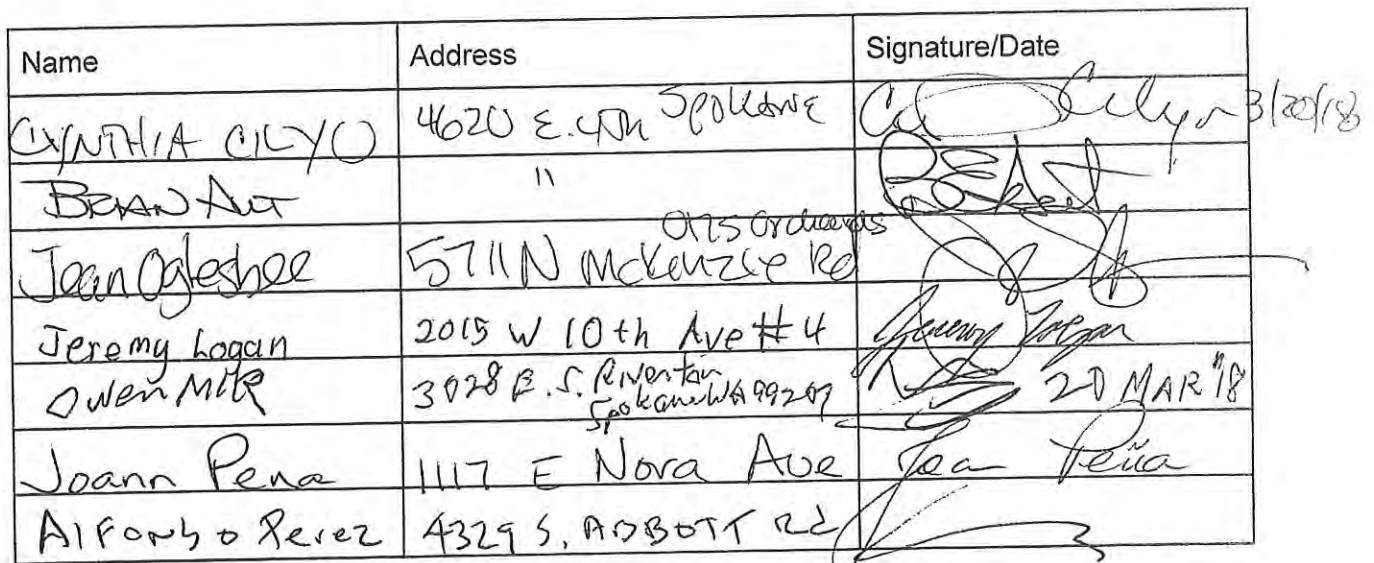 Name Address Signature/Date
CYNTHIA CILYO 4620 E. 4th Spokane 3/20/18
BRIAN ALT "
Jean Oglesbee 5711 N McKenzie Rd Otis Orchards
Jeremy Logan 2015 W 10th Ave #4 Jeremy Logan
Owen Mik 3028 E. S. Riverton Spokane WA 99207 20 MAR '18
Joann Pena 1117 E Nora Ave Joan Peña
Alfonso Perez 4329 S. ABBOTT Rd